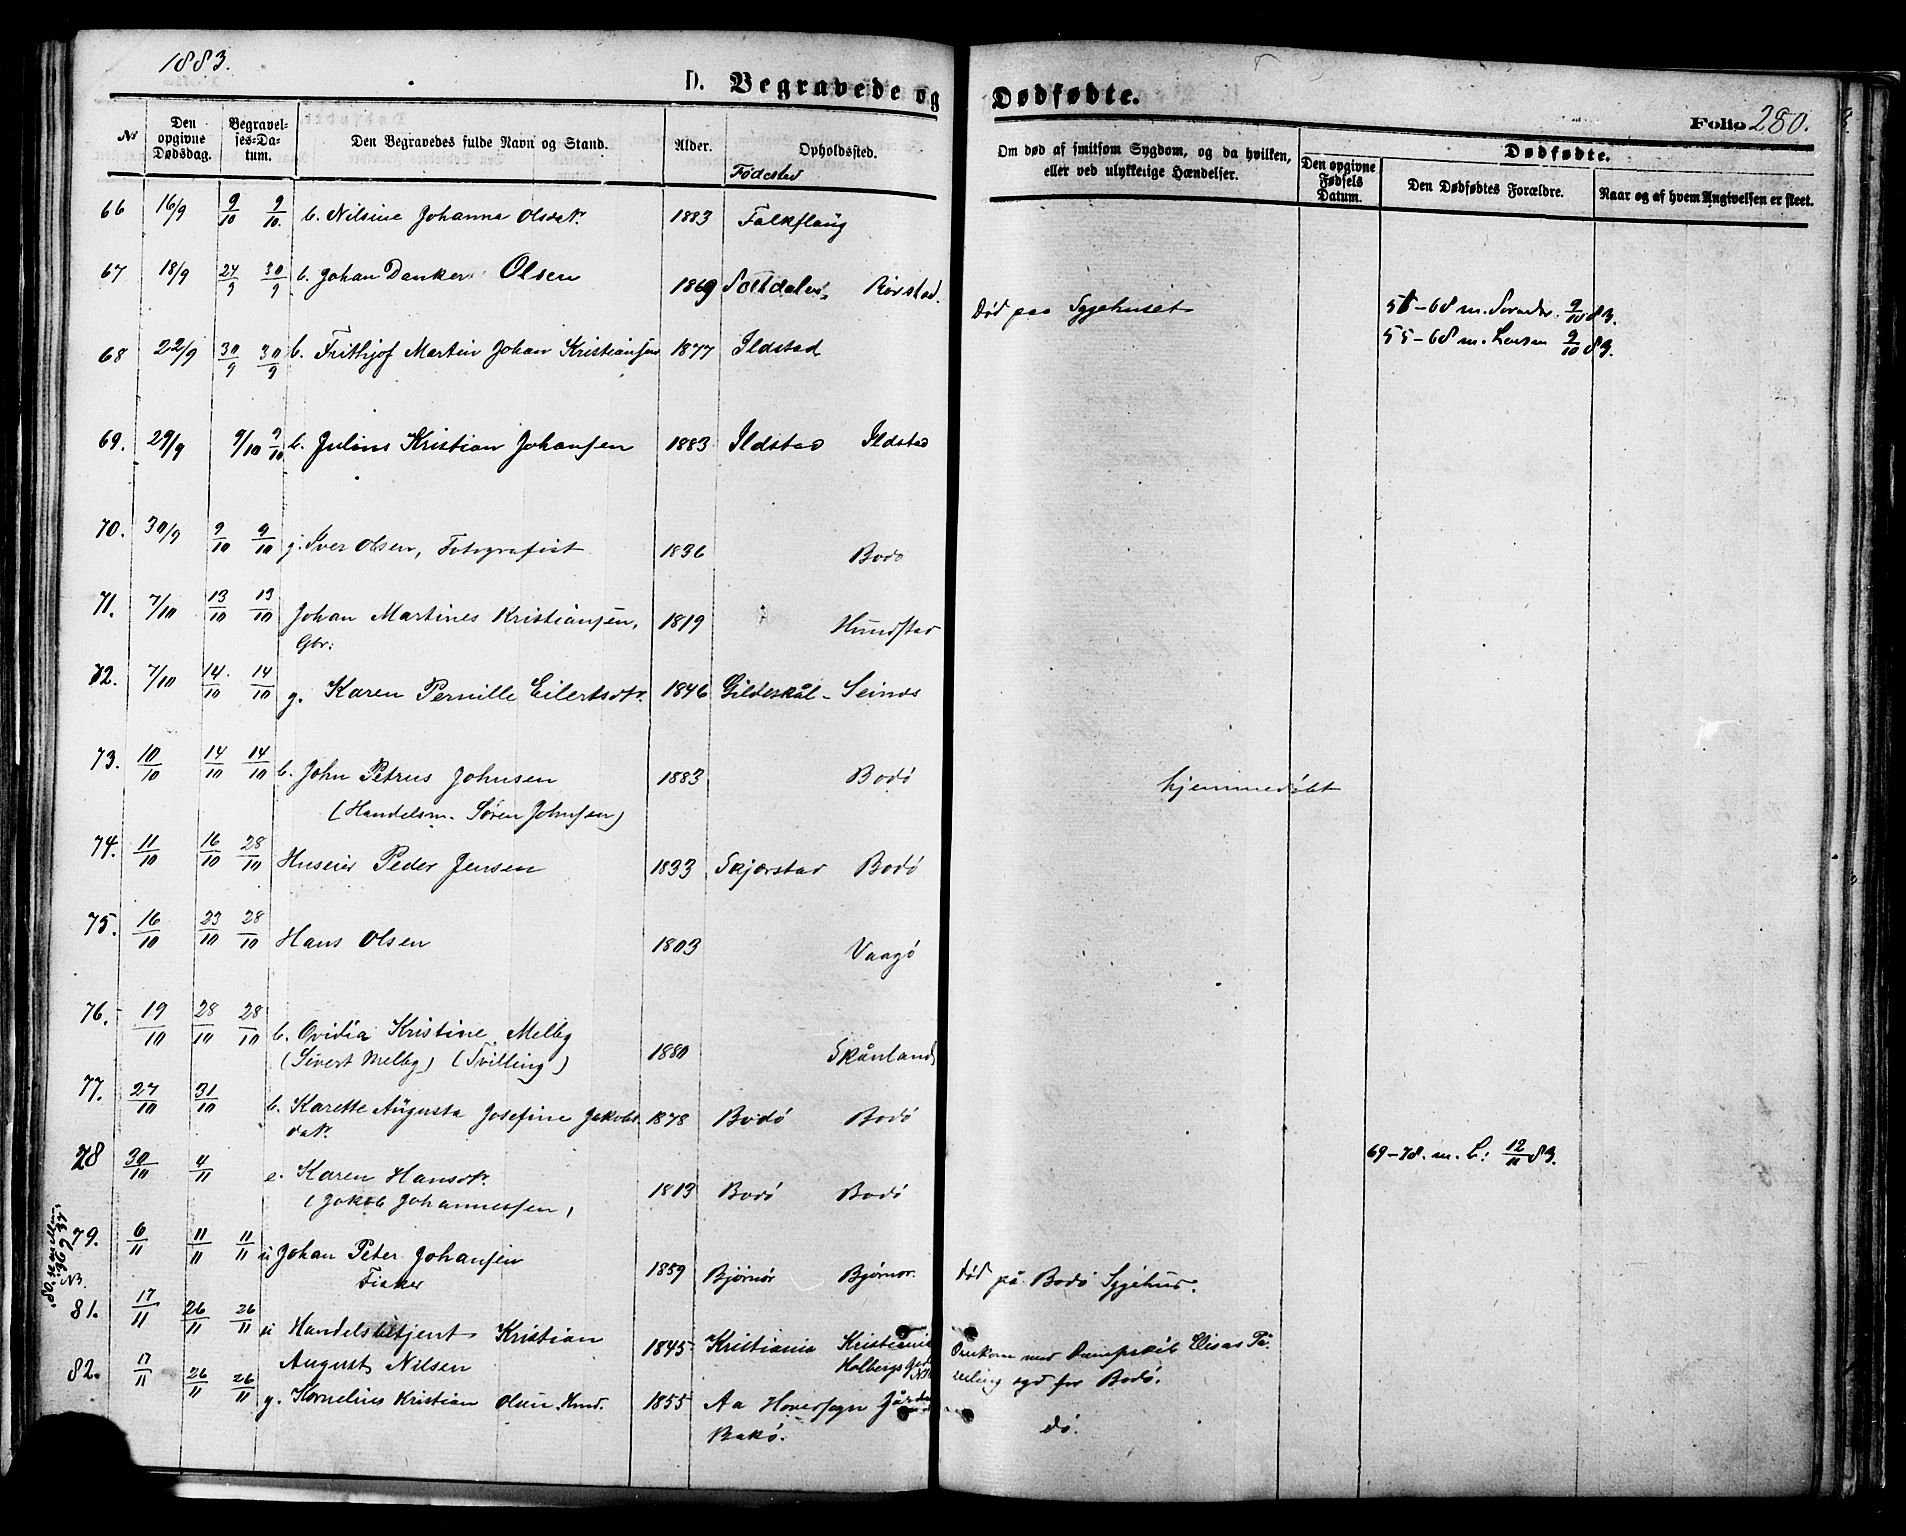 1883.
D. Begravede og Dødfødte.
Folio 280.
No
Den opgivne Dødsdag.
Begravelses-Datum.
Den Begravedes fulde Navn og Stand.
Alder.
Opholdssted.
Fødested
Om død af smitsom Sygdom, og da hvilken, eller ved ulykkelige Hændelser.
Dødfødte.
Den opgivne Fødsels Datum.
Den Dødfødtes Forældre.
Naar og af hvem Angivelsen er skeet.
66 16/9 9/10 9/10. b. Nilsine Johanna Olsdatr. 1883 Falkflaug
67 18/9 24/9 30/9 b. Johan Danker Olsen 1869 Saltdalen Rørstad.
Død paa Sygehuset
55-68 m. 9/10 83.
68 22/9 30/9 30/9 b. Frithjof Martin Johan Kristiansen 1877 Ildstad
55-68 m. Lensm 9/10 83.
69. 29/9 9/10 9/10 b. Julius Kristian Johansen 1883 Ildstad Ildstad
70. 30/9 9/10 9/10 g. Iver Olsen, Fotografist 1836 Bodø
71. 7/10 13/10 13/10 Johan Martines Kristiansen, 1819 Hundstad
Gbr:
72. 7/10 14/10 14/10 g. Karen Pernille Eilertsdtr. 1846 Gildeskål - Seines
73. 10/10 14/10 14/10 b. John Petrus Johnsen 1883 Bodø hjemmedøbt
(Handelsm. Søren Johnsen)
74. 11/10 16/10 28/10 Huseier Peder Jensen 1833 Skjerstad Bodø
75. 16/10 23/10 28/10 Hans Olsen 1803 Vaagø
76. 19/10 28/10 28/10 b. Ovidia Kristine Melby
(Sivert Melby) (Tvilling) 1880 Skånland
77. 27/10 31/10 b. Karette Augusta Josefine Jakobs 1878 Bodø Bodø
datr.
78 30/10 4/11 e. Karen Hansdtr. 1813 Bodø Bodø
69-78. m. L: 12/11 83.
(Jakob Johannessen)
79. 6/11 11/11 11/11 u Johan Peter Johansen 1859 Bjørnør Bjørnør. Død på Bodø Sygehus.
Fisker
80. se mellem 36 & 37.
NB.
81. 17/11 26/11 26/11 u Handelsbetjent Kristian 1845 Kristiania Kristiania
August Nilsen Holbergs
Omkom med Dampskib
for Bodø.
82. 17/11 26/11 26/11 g. Kornelius Kristian Olsen 1855 Aa Hoversogn
do.